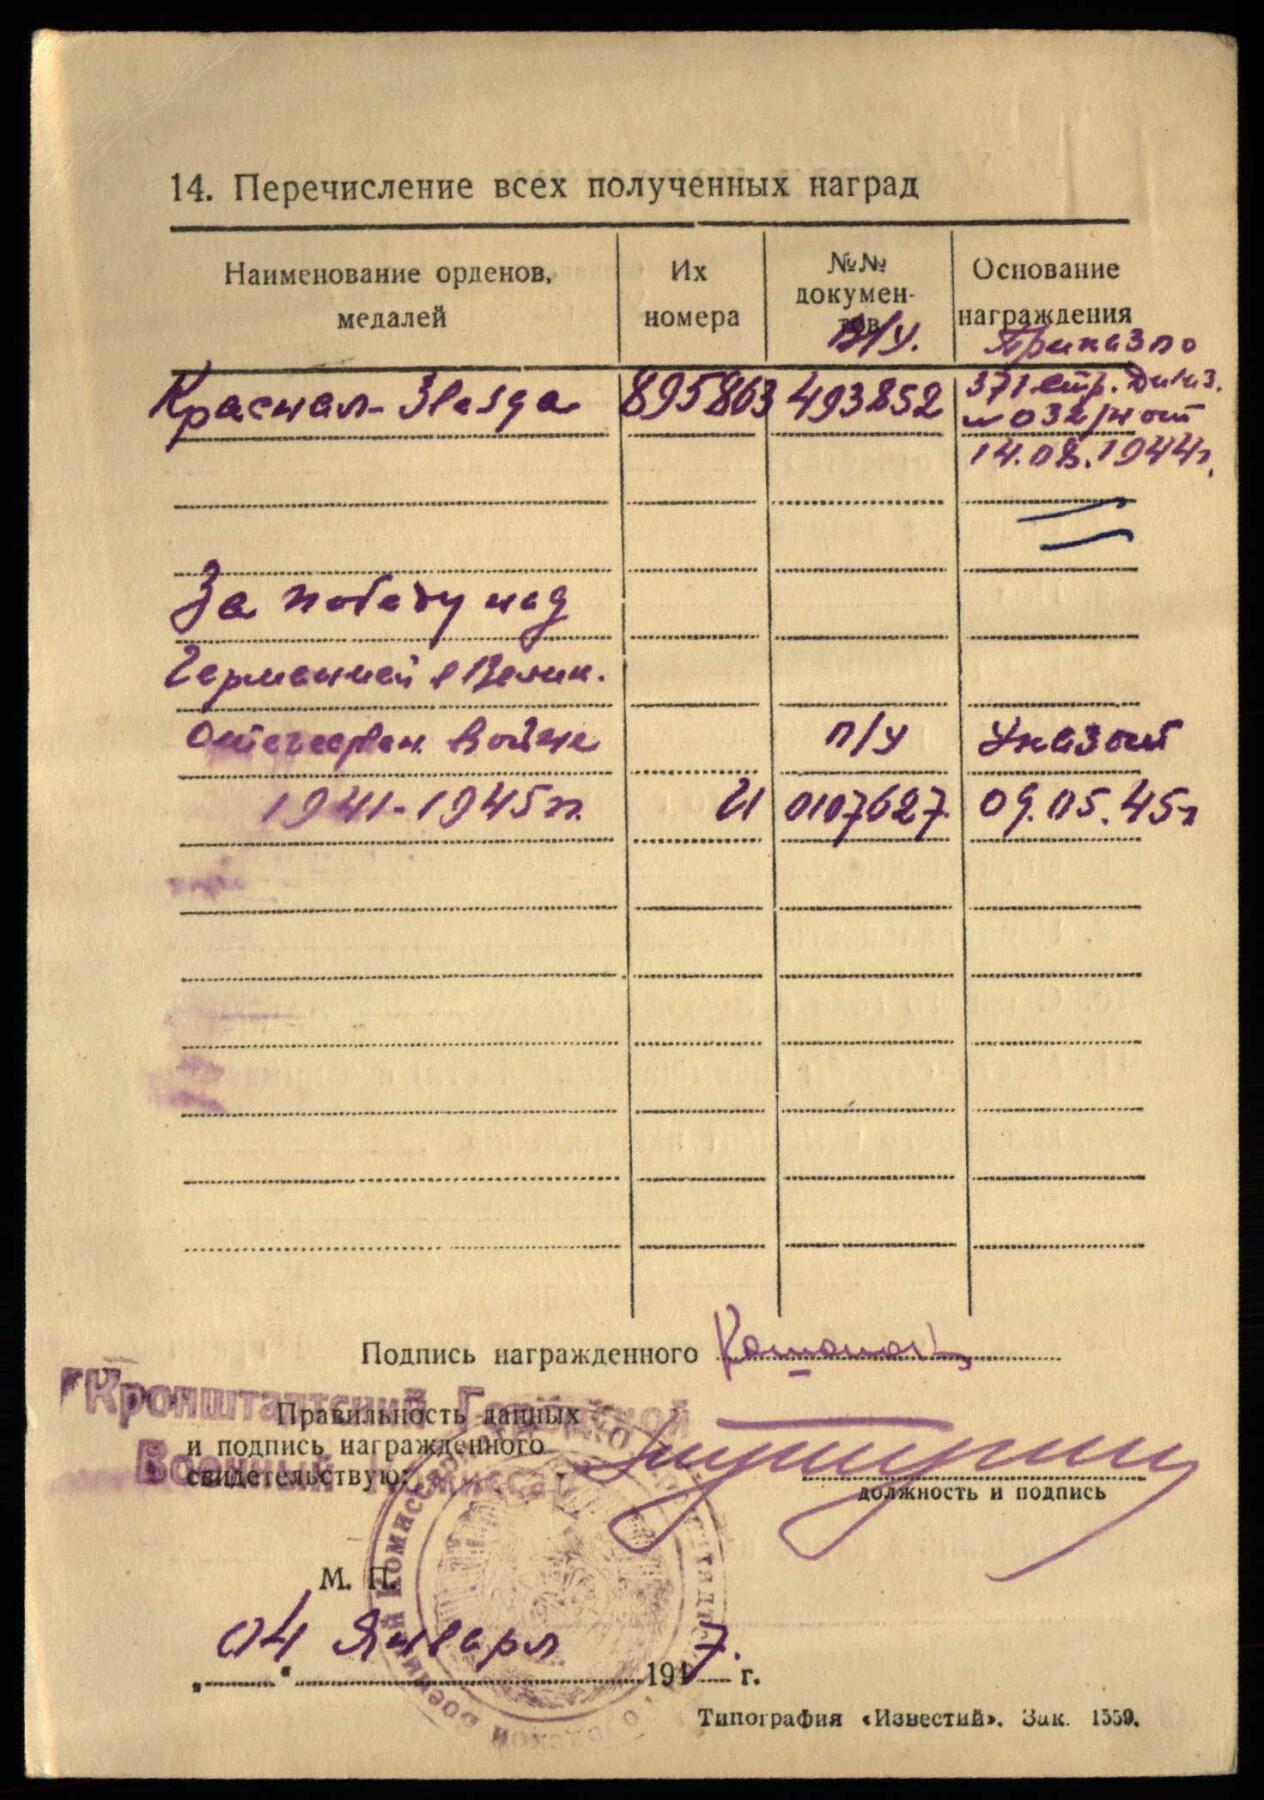 14. Перечисление всех полученных наград
Наименование орденов, медалей
Их номера
№№ документов
Основание награждения
В/У.
Приказ по
Красная Звезда 895863 493852 371 стр. Дивиз.
№ 032/н от
14.08.1944г.
За победу над
Германией в Велик.
Отечествен. войне п/у Указ от
1941-1945гг. И 0107627 09.05.45г
Подпись награжденного
Кронштадтский Городской
Правильность данных
и подпись награжденного
Военный Комиссар
свидетельствую:
должность и подпись
М. П.
„04“ Января 1947 г.
Типография «Известий». Зак. 1559.